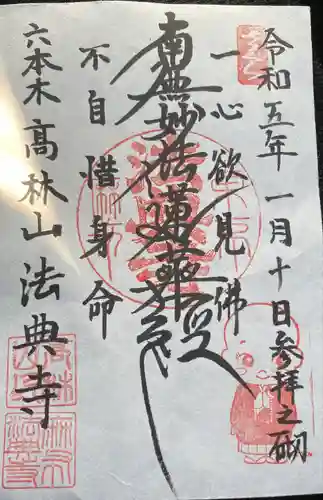 令和五年一月十日参拝之砌
一心欲見佛
南無妙法蓮華経
不自惜身命
六本木 高林山 法典寺